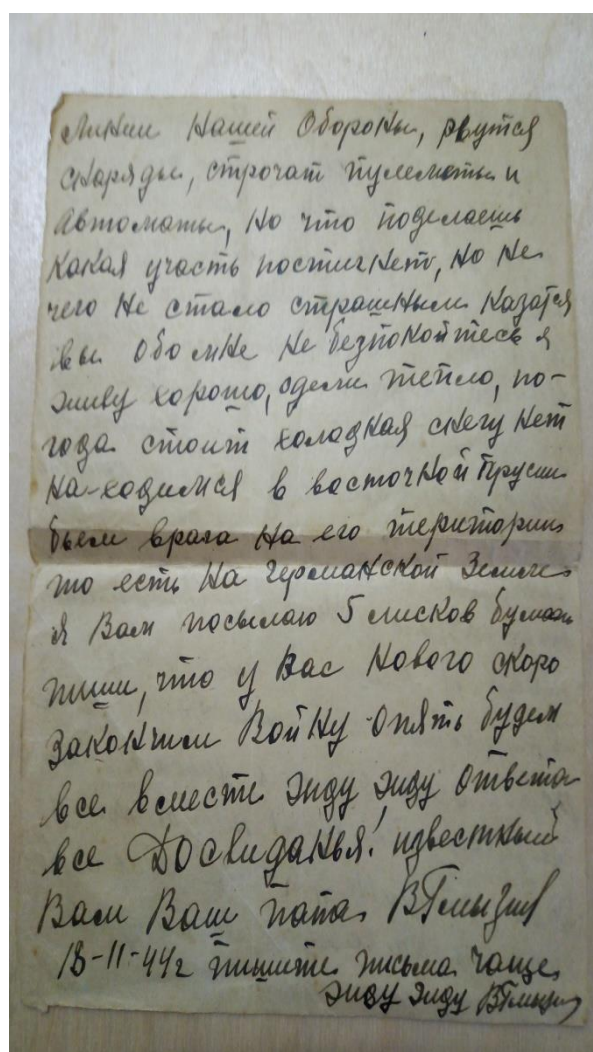 Линии нашей Обороны, рвутся
снаряды, строчат пулеметы и
Автоматы, но что поделаешь
какая участь постигнет, но не
чего не стало страшным казатся
вы обо мне не безпокойтесь я
живу хорошо, одели тепло, по-
года стоит холадная снегу нет
на-ходимся в восточной Прусии
бьем врага на его територии
то есть на германской Земле
я Вам посылаю 5 лисков бумаги
пиши, что у Вас нового скоро
закончим Войну опять будем
все вместе жду жду ответа
все Досвиданья! известный
Вам Ваш папа
18-11-44г пишите письма чаще
жду жду